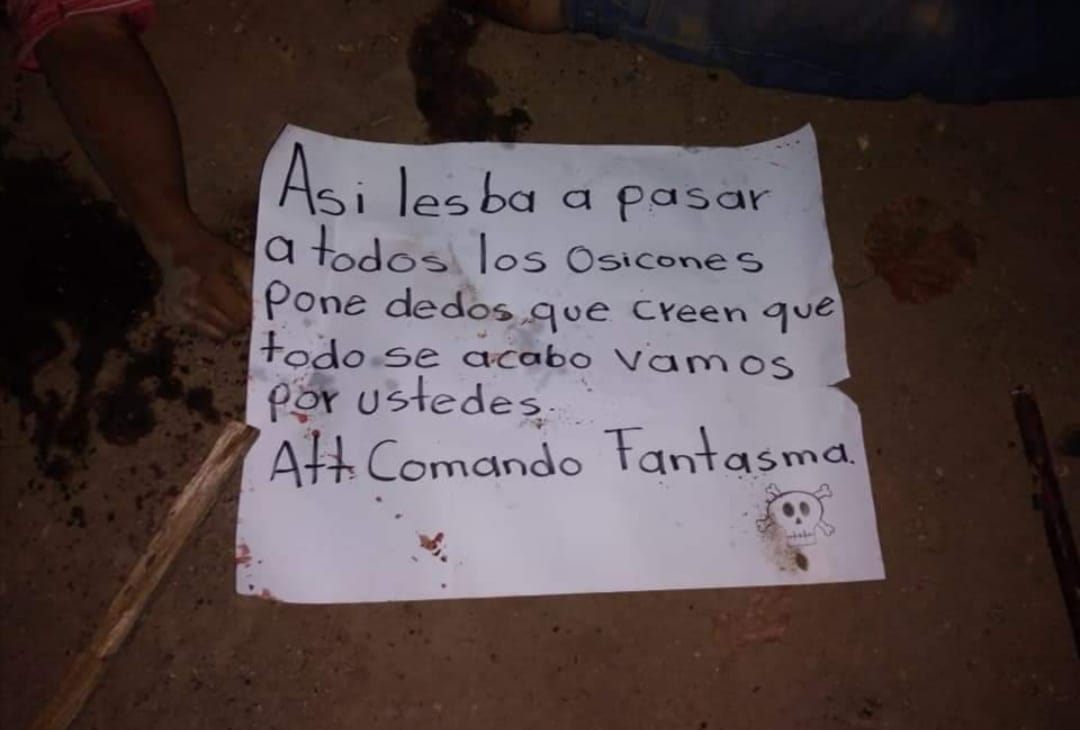 Asi les ba a pasar
a todos los Osicones
pone dedos que creen que
todo se acabo vamos
por ustedes.
Att Comando Fantasma.